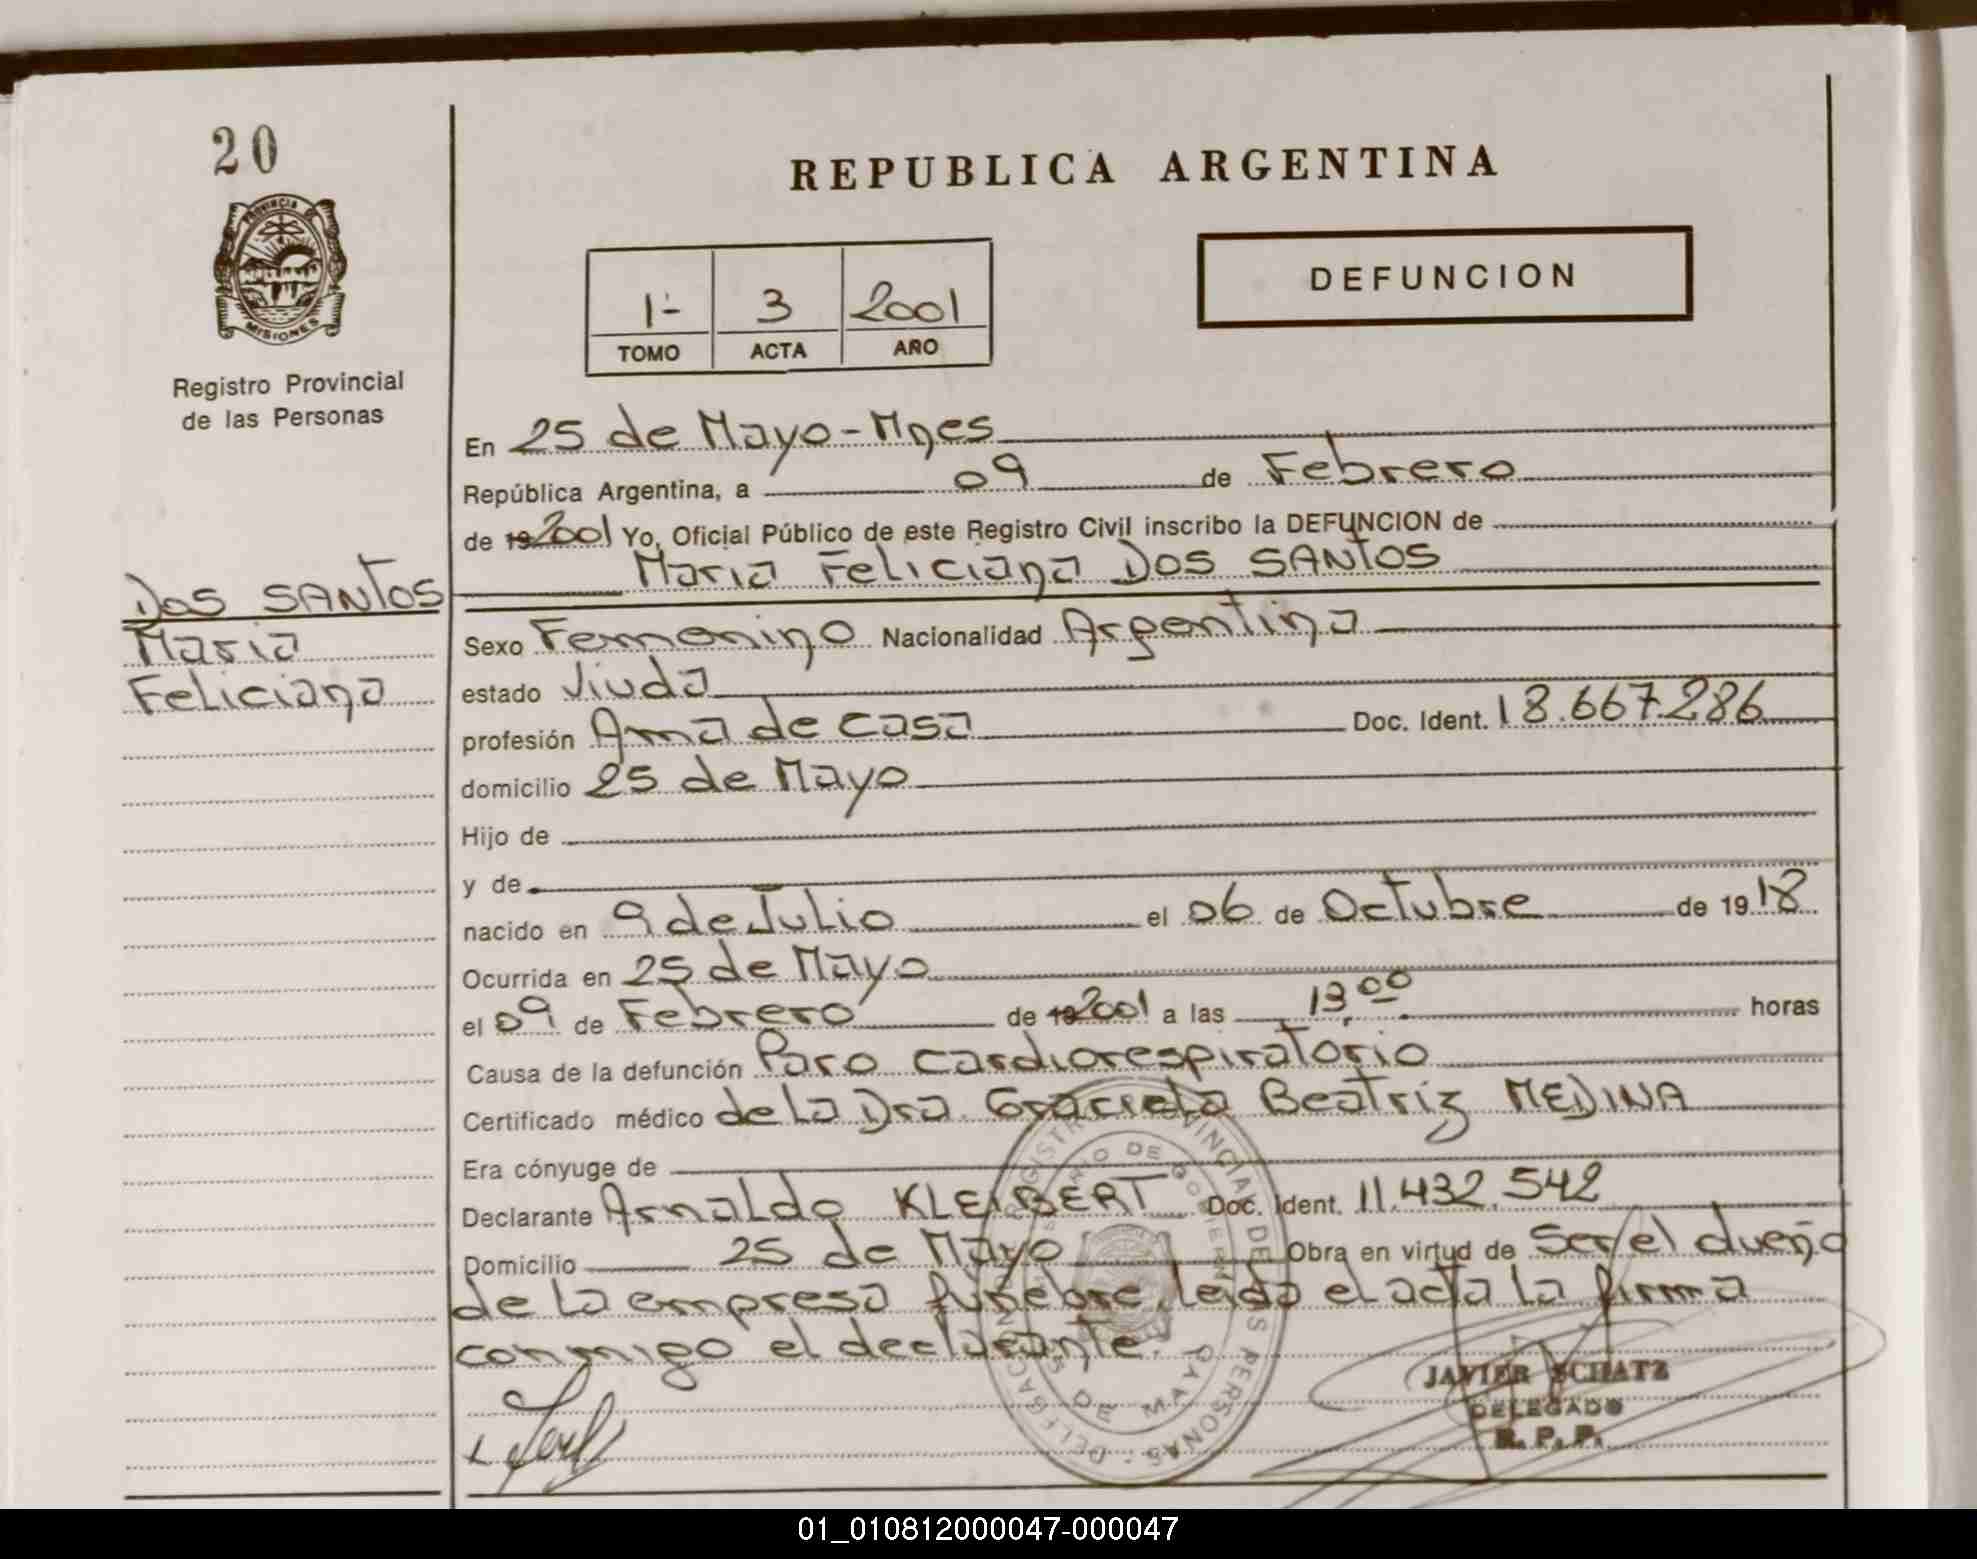 20
PROVINCIA DE
MISIONES
Registro Provincial
de las Personas
DOS SANTOS
Maria
Feliciana
REPUBLICA ARGENTINA
1- 3 2001
TOMO ACTA AÑO
DEFUNCION
En 25 de Mayo - Mnes
República Argentina, a 09 de Febrero
de 19 2001 Yo, Oficial Público de este Registro Civil inscribo la DEFUNCION de
Maria Feliciana DOS SANTOS
Sexo Femenino Nacionalidad Argentina
estado Viuda
profesión Ama de casa Doc. Ident. 18.667.286
domicilio 25 de Mayo
Hijo de
y de
nacido en 9 de Julio el 06 de Octubre de 1918
Ocurrida en 25 de Mayo
el 09 de Febrero de 19 2001 a las 13,00 horas
Causa de la defunción Paro cardiorespiratorio
Certificado médico de la Dra. Graciela Beatriz MEDINA
Era cónyuge de
Declarante Arnaldo KLEIBERT Doc. Ident. 11.432.542
Domicilio 25 de Mayo Obra en virtud de Ser el dueño
de la empresa fúnebre, leida el acta la firma
conmigo el declarante.
JAVIER SCHATZ
DELEGADO
R. P. P.
01_010812000047-000047